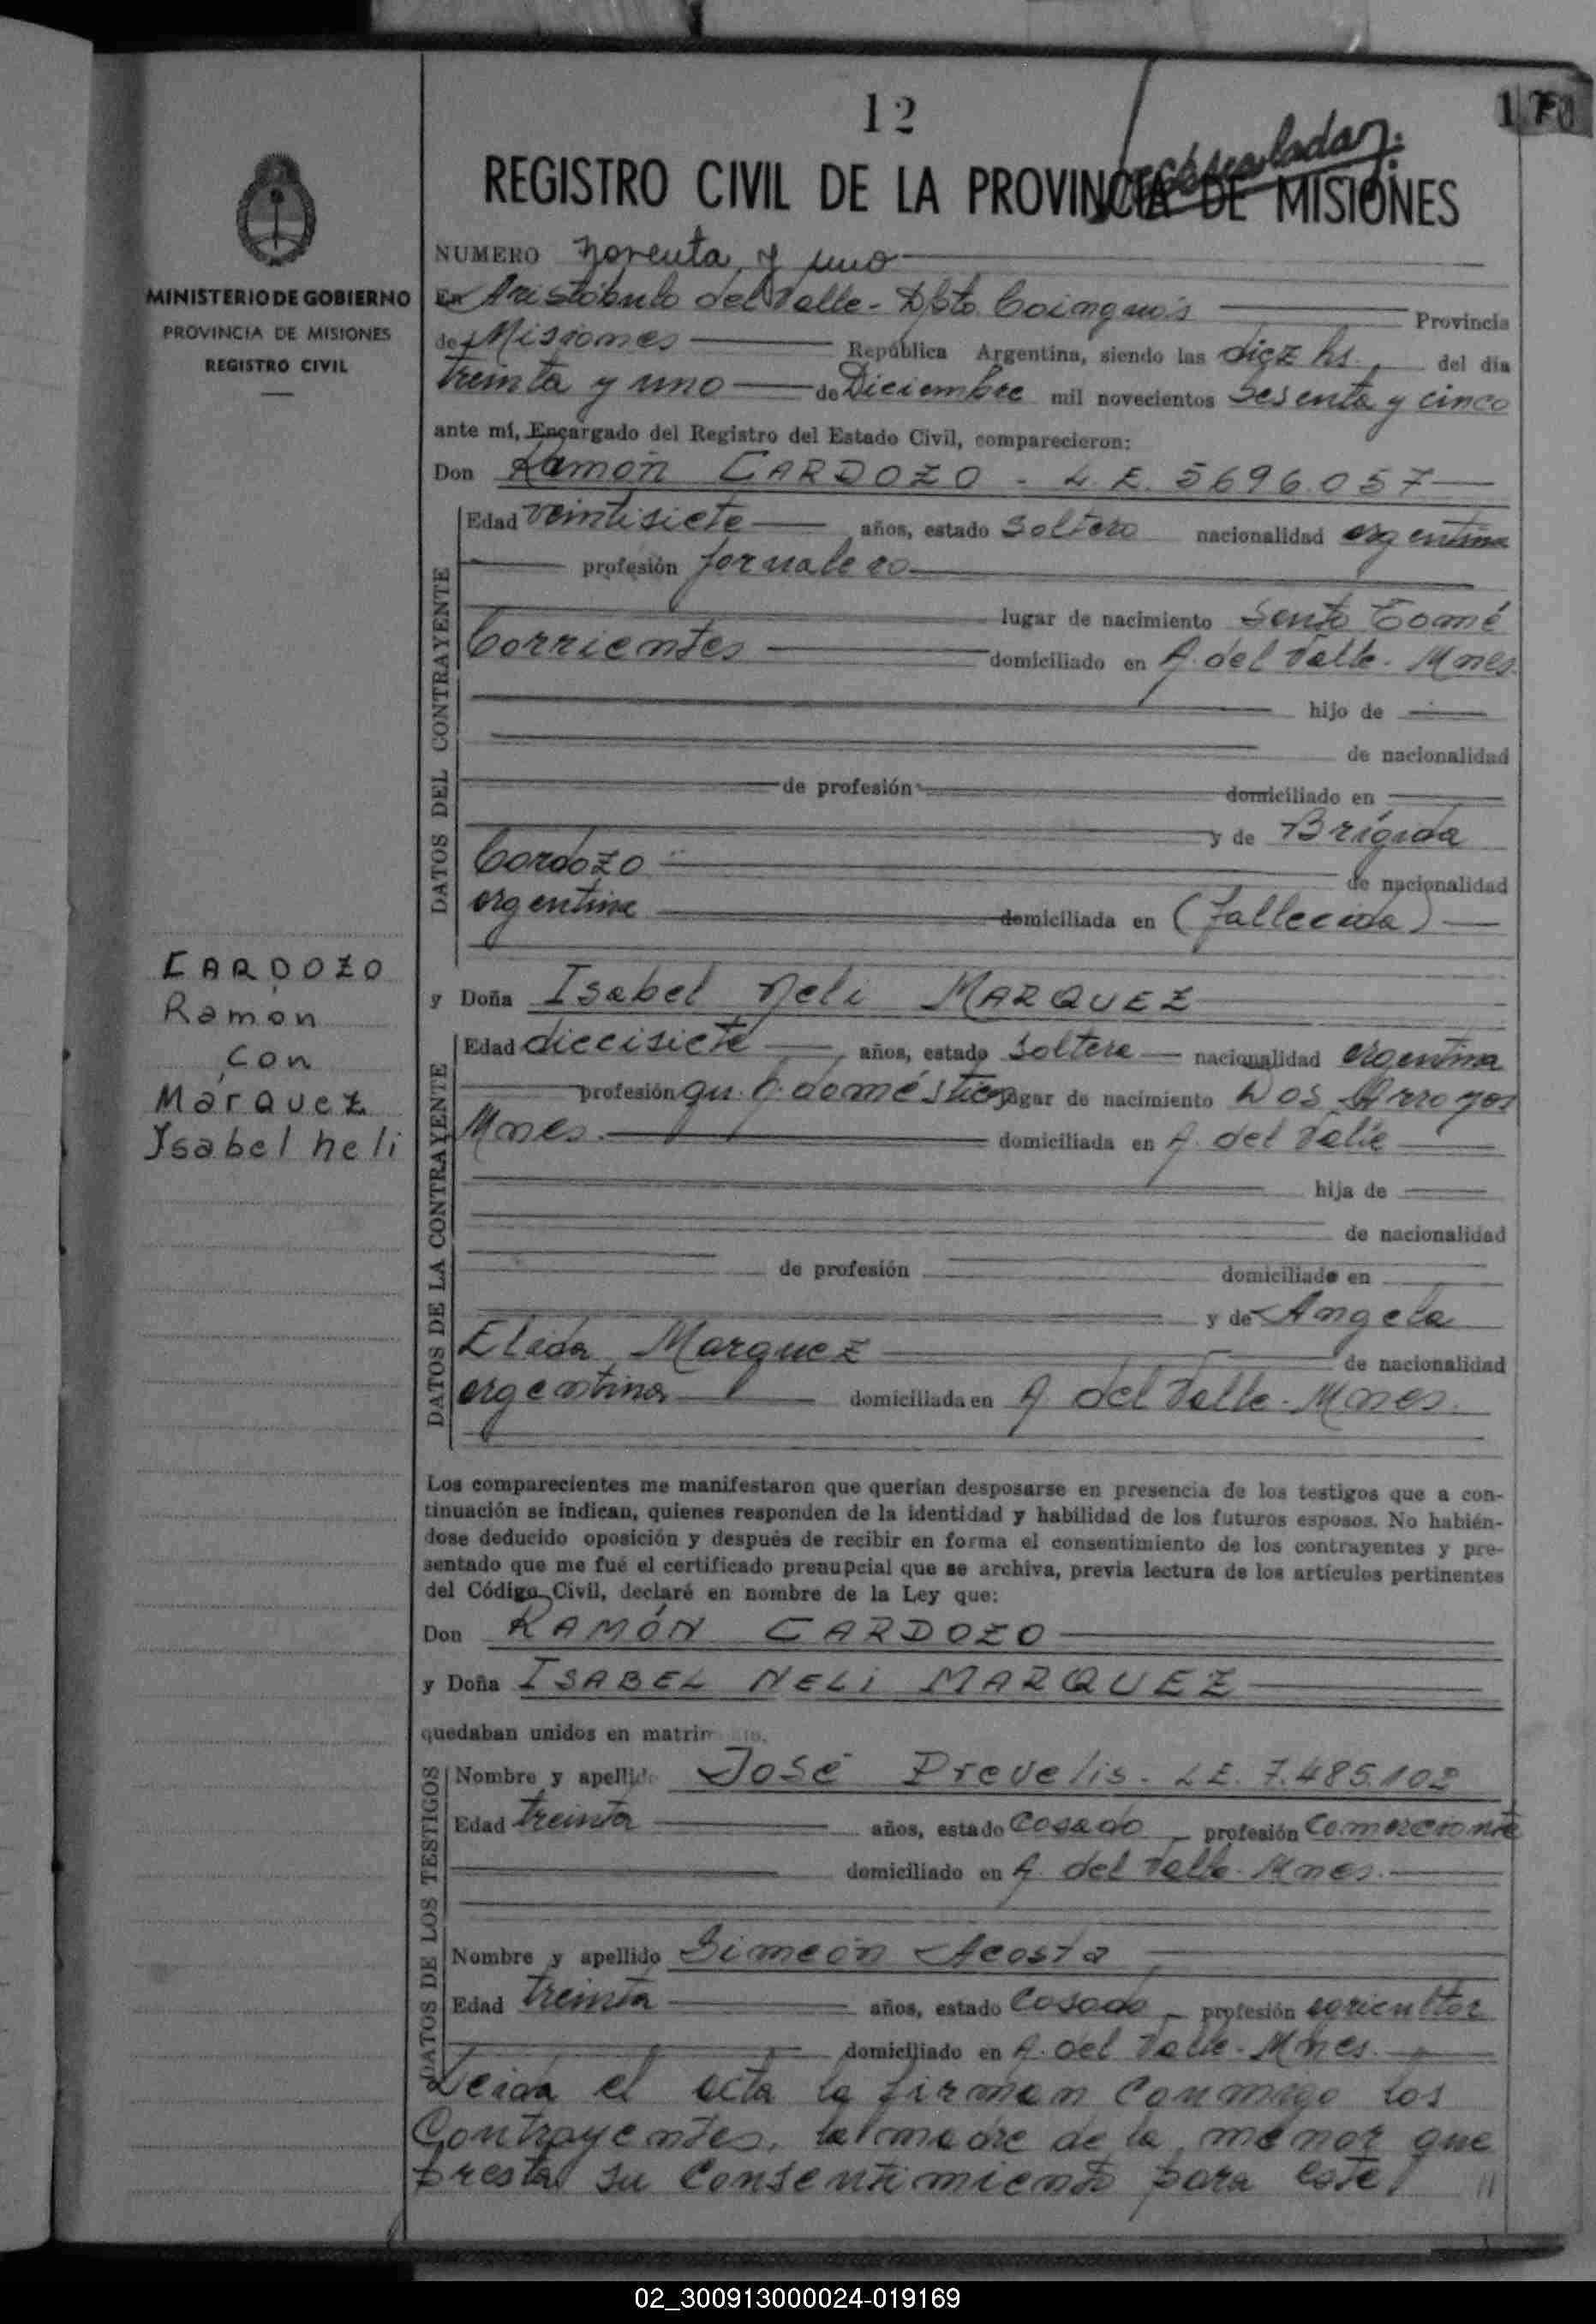 12
REGISTRO CIVIL DE LA PROVINCIA DE MISIONES
MINISTERIO DE GOBIERNO
PROVINCIA DE MISIONES
REGISTRO CIVIL
NUMERO noventa y uno
En Aristóbulo del Valle - Dpto Cainguás Provincia
de Misiones República Argentina, siendo las diez hs. del día
treinta y uno de Diciembre mil novecientos Sesenta y cinco
ante mí, Encargado del Registro del Estado Civil, comparecieron:
Don Ramón CARDOZO - L.E. 5696.057
DATOS DEL CONTRAYENTE
Edad veintisiete años, estado soltero nacionalidad argentina
profesión jornalero
lugar de nacimiento Santo Tomé
Corrientes domiciliado en A. del Valle - Mnes.
hijo de
de nacionalidad
de profesión domiciliado en
y de Brígida
Cardozo de nacionalidad
argentina domiciliada en (fallecida)
CARDOZO
Ramón
con
Márquez
Isabel neli
y Doña Isabel Neli MARQUEZ
DATOS DE LA CONTRAYENTE
Edad diecisiete años, estado soltera nacionalidad argentina
profesión qu. h. doméstico lugar de nacimiento Dos Arroyos
Mnes. domiciliada en A. del Valle
hija de
de nacionalidad
de profesión domiciliado en
y de Angela
Elida Marquez de nacionalidad
argentina domiciliada en A. del Valle - Mnes.
Los comparecientes me manifestaron que querían desposarse en presencia de los testigos que a con-
tinuación se indican, quienes responden de la identidad y habilidad de los futuros esposos. No habién-
dose deducido oposición y después de recibir en forma el consentimiento de los contrayentes y pre-
sentado que me fué el certificado prenupcial que se archiva, previa lectura de los artículos pertinentes
del Código Civil, declaré en nombre de la Ley que:
Don RAMÓN CARDOZO
y Doña ISABEL NELI MARQUEZ
quedaban unidos en
DATOS DE LOS TESTIGOS
Nombre y apellido José Prevelis - L.E. 7.485.102
Edad treinta años, estado casado profesión comerciante
domiciliado en A. del Valle - Mnes.
Nombre y apellido Simeón Acosta
Edad treinta años, estado casado profesión agricultor
domiciliado en A. del Valle - Mnes.
Leida el acta la firman conmigo los
Contrayentes, la madre de la menor que
presta su consentimiento para este //
02_300913000024-019169